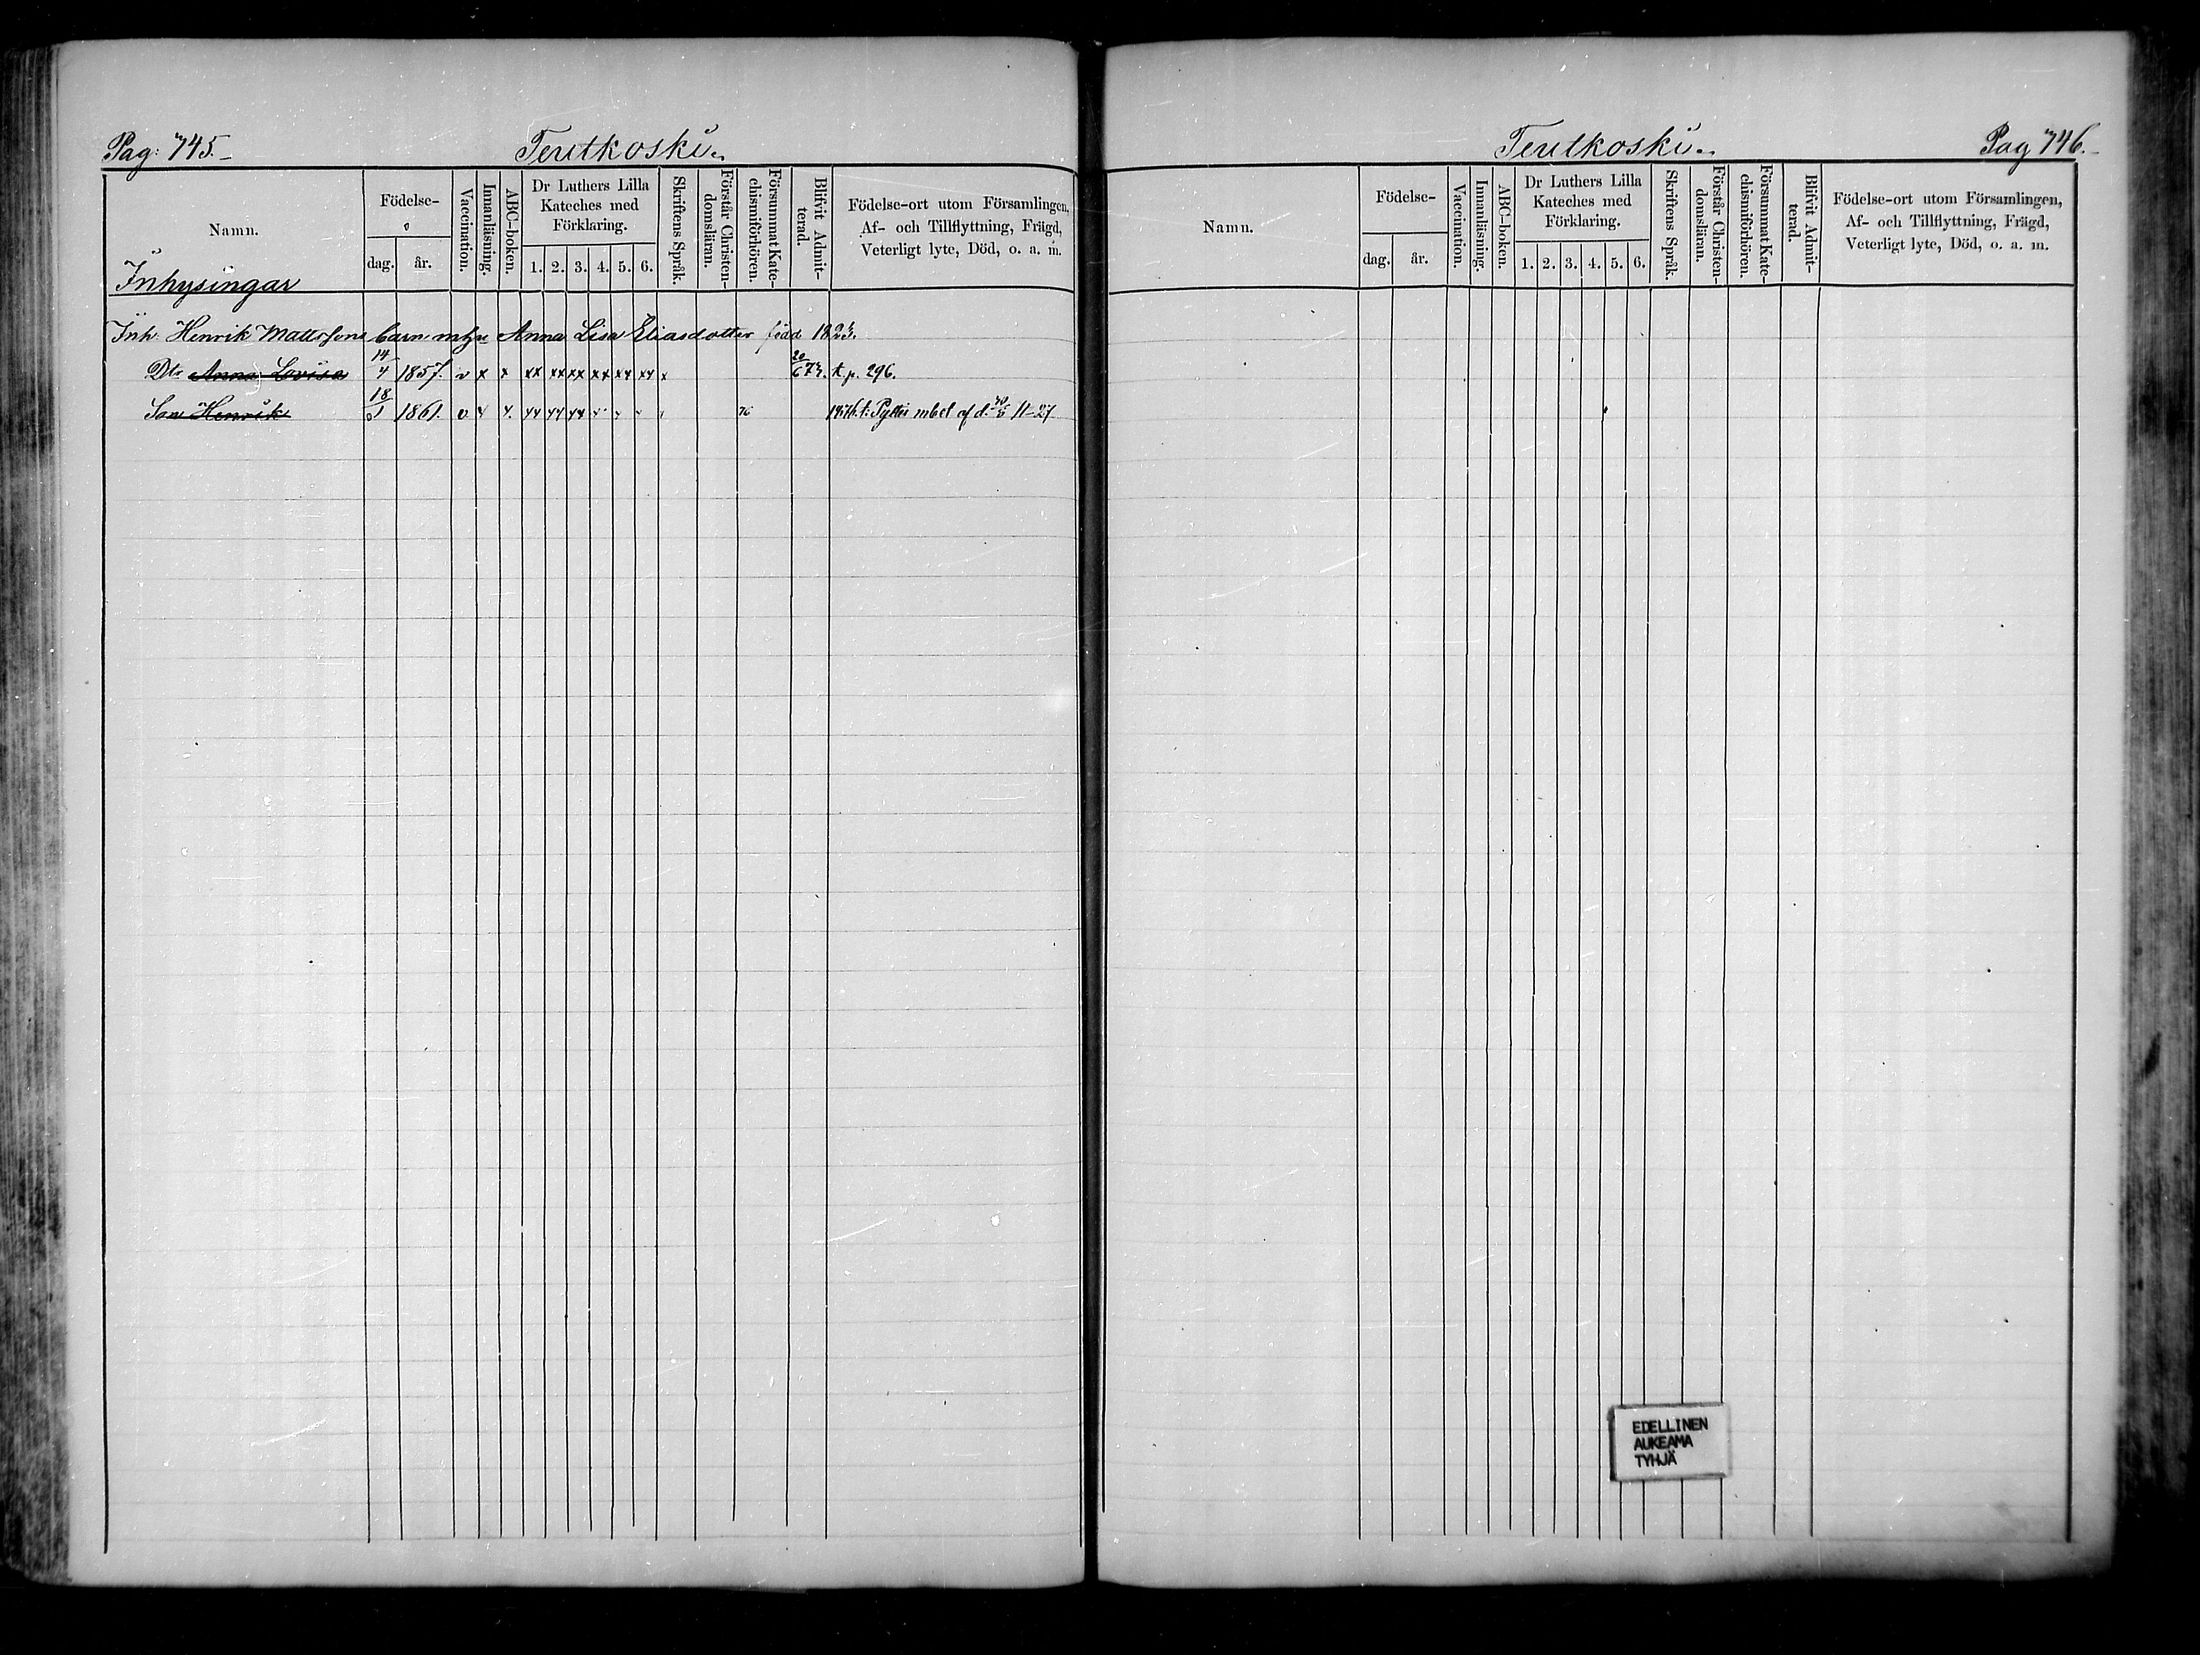 Pag: 745.
Teutkoski.
Namn.
Födelse-
dag. år.
Vaccination.
Innanläsning.
ABC-boken.
Dr Luthers Lilla
Kateches med
Förklaring.
1. 2. 3. 4. 5. 6.
Skriftens Språk.
Förstår Christen-
domsläran.
Försummat Kate-
chismiförhören.
Blifvit Admit-
terad.
Födelse-ort utom Församlingen,
Af- och Tillflyttning, Frägd,
Veterligt lyte, Död, o. a. m.
Inhysingar
Inh. Henrik Mattssons barn m Anna Lisa Eliasdotter född 1823.
Dtr Anna Lovisa 14/4 1857. v x x xx xx xx xx xx xx x 20/6 73. t. p. 296.
Son Henrik 18/1 1861. v x x. xx xx xx 76 1876. t. Pyttis mbet af d. 11-27
Teutkoski.
Pag 746.
Namn.
Födelse-
dag. år.
Vaccination.
Innanläsning.
ABC-boken.
Dr Luthers Lilla
Kateches med
Förklaring.
1. 2. 3. 4. 5. 6.
Skriftens Språk.
Förstår Christen-
domsläran.
Försummat Kate-
chismiförhören.
Blifvit Admit-
terad.
Födelse-ort utom Församlingen,
Af- och Tillflyttning, Frägd,
Veterligt lyte, Död, o. a. m.
EDELLINEN
AUKEAMA
TYHJÄ